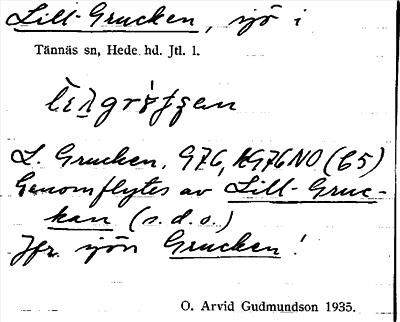 Lill-Grucken, sjö i
Tännäs sn, Hede hd. Jtl. l.
L. Grucken, G76, KG76NO (C5)
Genomflytes av Lill-Gruc-
kan (s.d.o.)
Jfr sjön Grucken!
O. Arvid Gudmundson 1935.